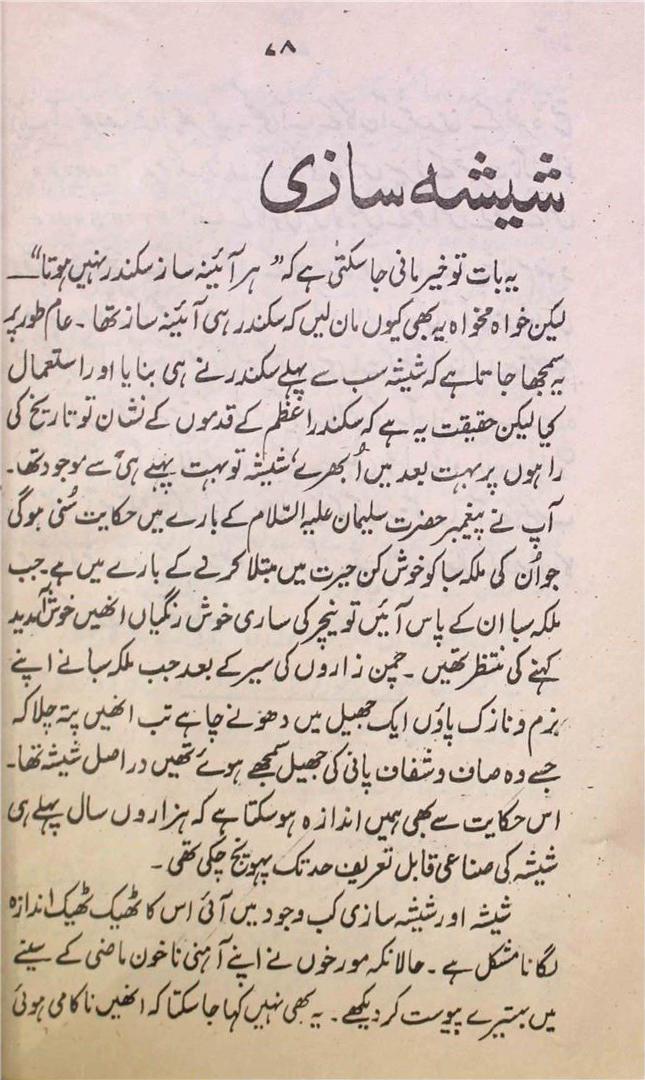 ۷۸
شیشہ سازی
یہ بات تو خیر مانی جا سکتی ہے کہ "ہر آئینہ ساز سکندر نہیں ہوتا" —
لیکن خواہ مخواہ یہ بھی کیوں مان لیں کہ سکندر ہی آئینہ ساز تھا۔ عام طور پر
یہ سمجھا جاتا ہے کہ شیشہ سب سے پہلے سکندر نے ہی بنایا اور استعمال
کیا لیکن حقیقت یہ ہے کہ سکندر اعظم کے قدموں کے نشان تو تاریخ کی
راہوں پر بہت بعد میں اُبھرے، شیشہ تو بہت پہلے ہی سے موجود تھا۔
آپ نے پیغمبر حضرت سلیمان علیہ السّلام کے بارے میں حکایت سُنی ہوگی
جو اُن کی ملکہ سبا کو خوش کن حیرت میں مبتلا کرنے کے بارے میں ہے۔ جب
ملکہ سبا ان کے پاس آئیں تو نیچر کی ساری خوش رنگیاں انھیں خوش آمدید
کہنے کی منتظر تھیں۔ چمن زاروں کی سیر کے بعد جب ملکہ سبا نے اپنے
نرم و نازک پاؤں ایک جھیل میں دھونے چاہے تب انھیں پتہ چلا کہ
جسے وہ صاف و شفاف پانی کی جھیل سمجھے ہوئے تھیں دراصل شیشہ تھا۔
اس حکایت سے بھی ہمیں اندازہ ہو سکتا ہے کہ ہزاروں سال پہلے ہی
شیشہ کی صناعی قابل تعریف حد تک پہونچ چکی تھی۔
شیشہ اور شیشہ سازی کب وجود میں آئی اس کا ٹھیک ٹھیک اندازہ
لگانا مشکل ہے۔ حالانکہ مورخوں نے اپنے آہنی ناخون ماضی کے سینے
میں بہتیرے پیوست کر دیکھے۔ یہ بھی نہیں کہا جا سکتا کہ انھیں ناکامی ہوئی